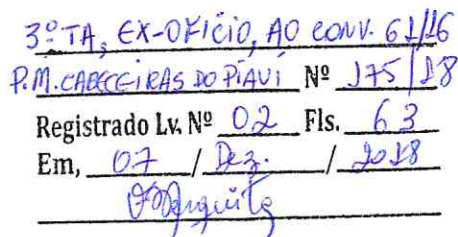 3º TA, EX-OFÍCIO, AO CONV. 61/16
P.M. CABECEIRAS DO PIAUÍ Nº 175/18
Registrado Lv. Nº 02 Fls. 63
Em, 07 / Dez. / 2018